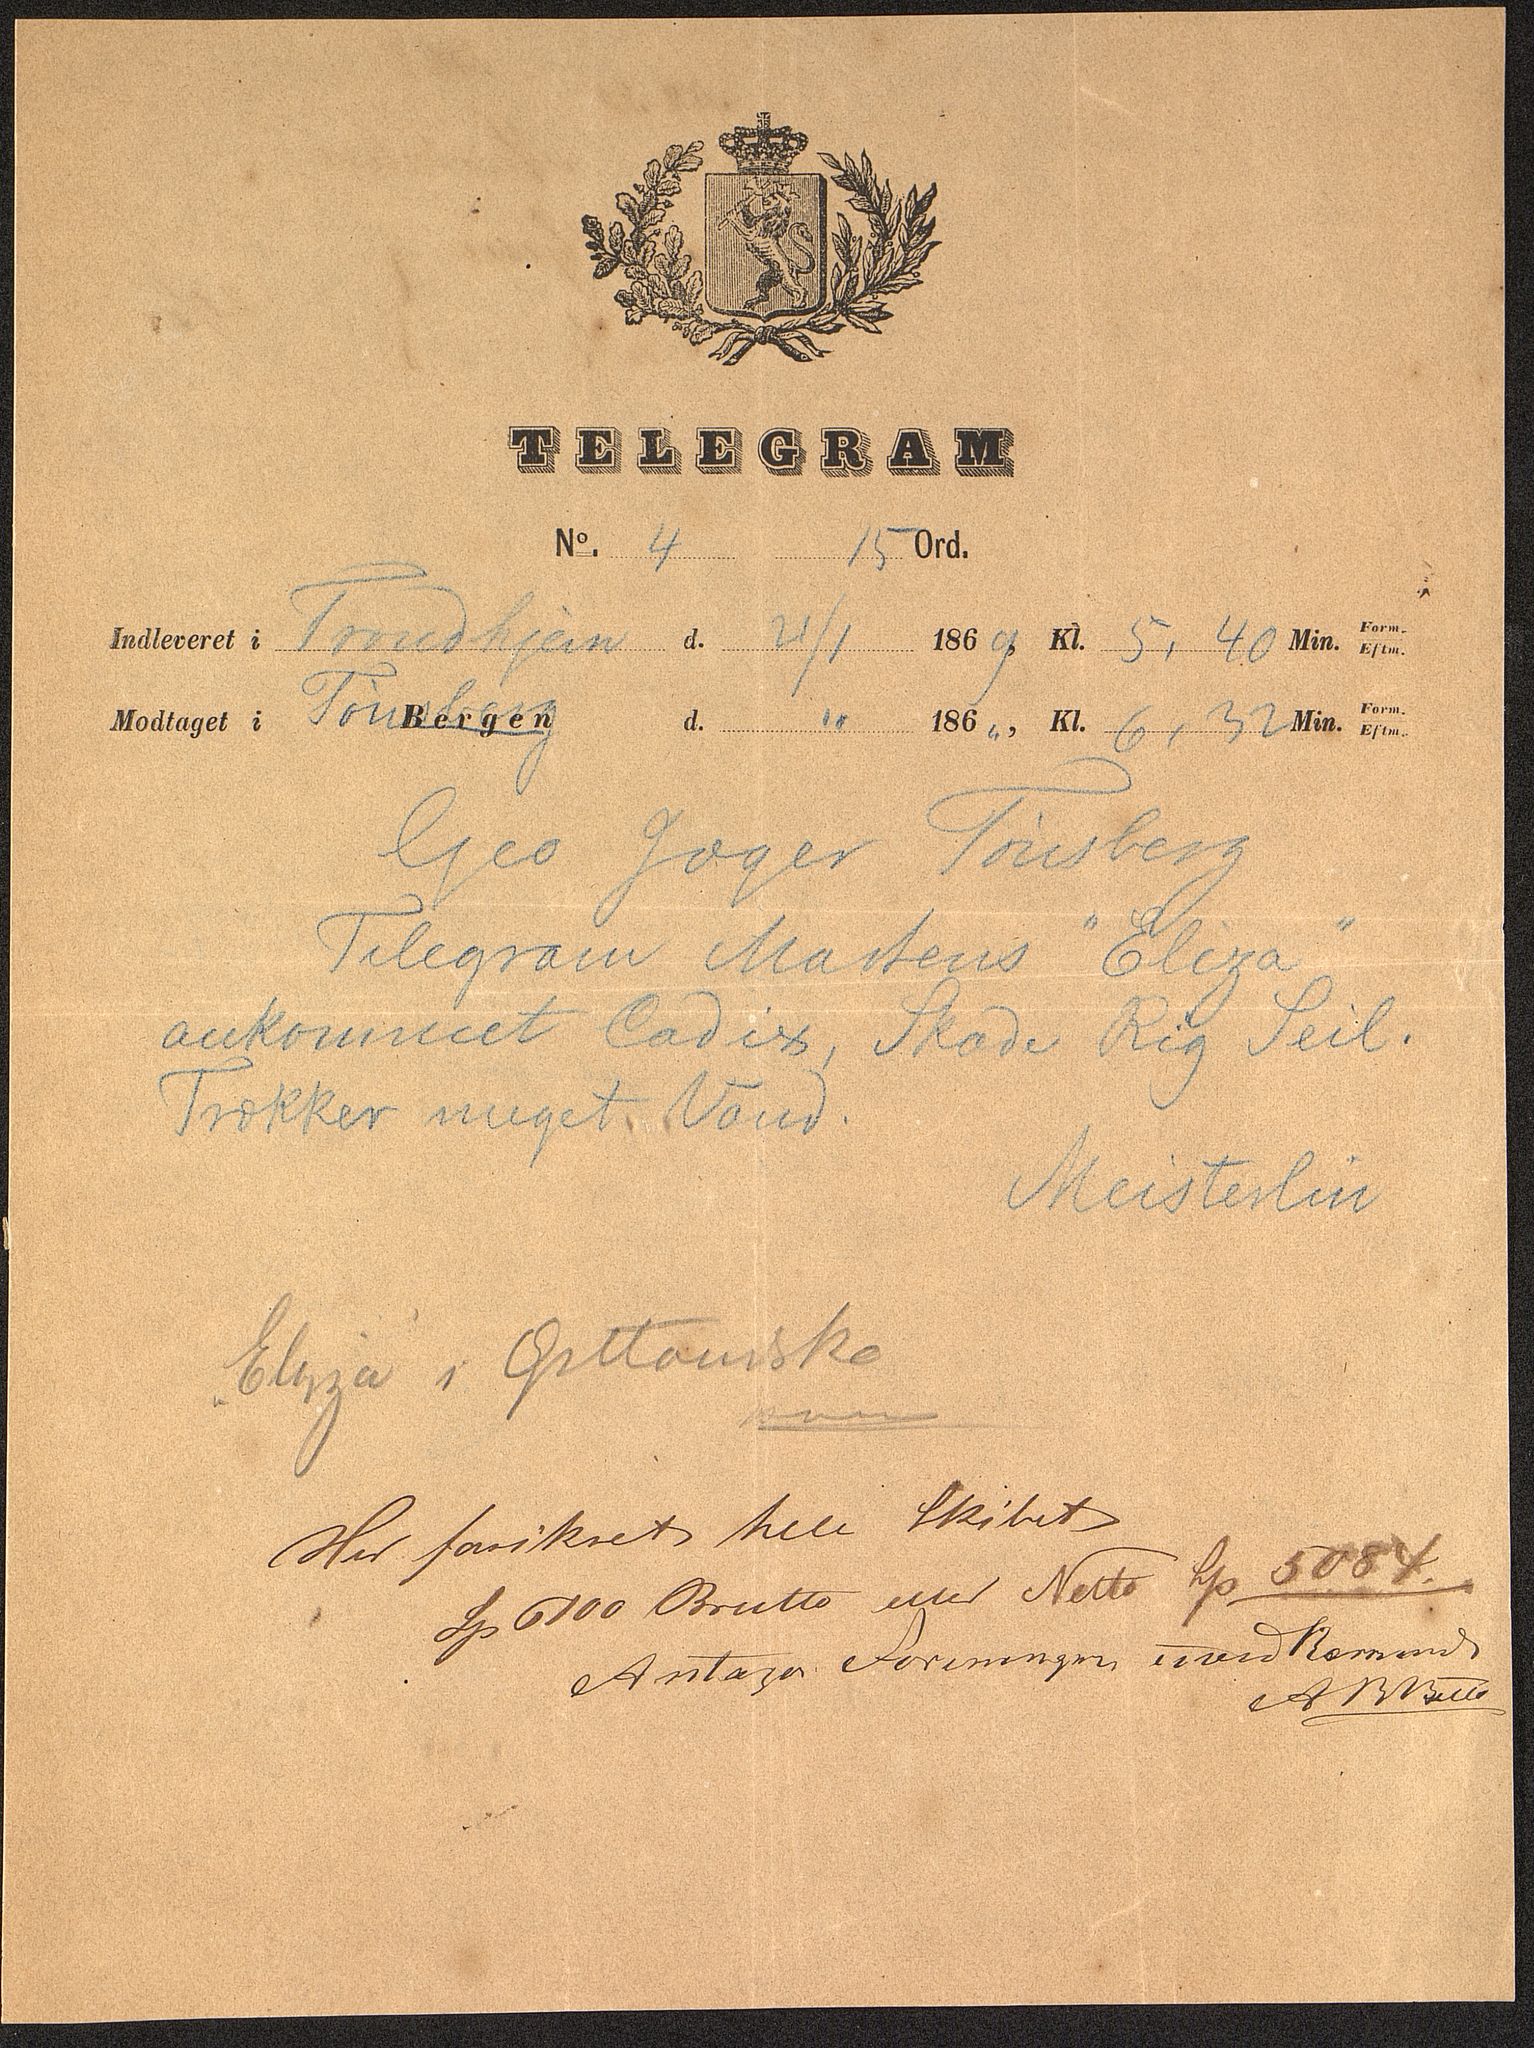 TELEGRAM
No. 4 15 Ord.
Indleveret i Trondhjem d. 21/1 1869, Kl. 5, 40 Min. Form. Eftm.
Modtaget i Tönsberg Bergen d. " 186", Kl. 6, 32 Min. Form. Eftm.
Geo Jæger Tönsberg
Telegram Martens "Eliza"
ankommet Cadix, Skade Rig Seil.
Trækker meget Vand.
Meisterlin
"Elyza i
Her forsikret hele Skibet
Sp 6100 Brutto eller Netto Sp 5084.
Antager Foreningen
A B Bull